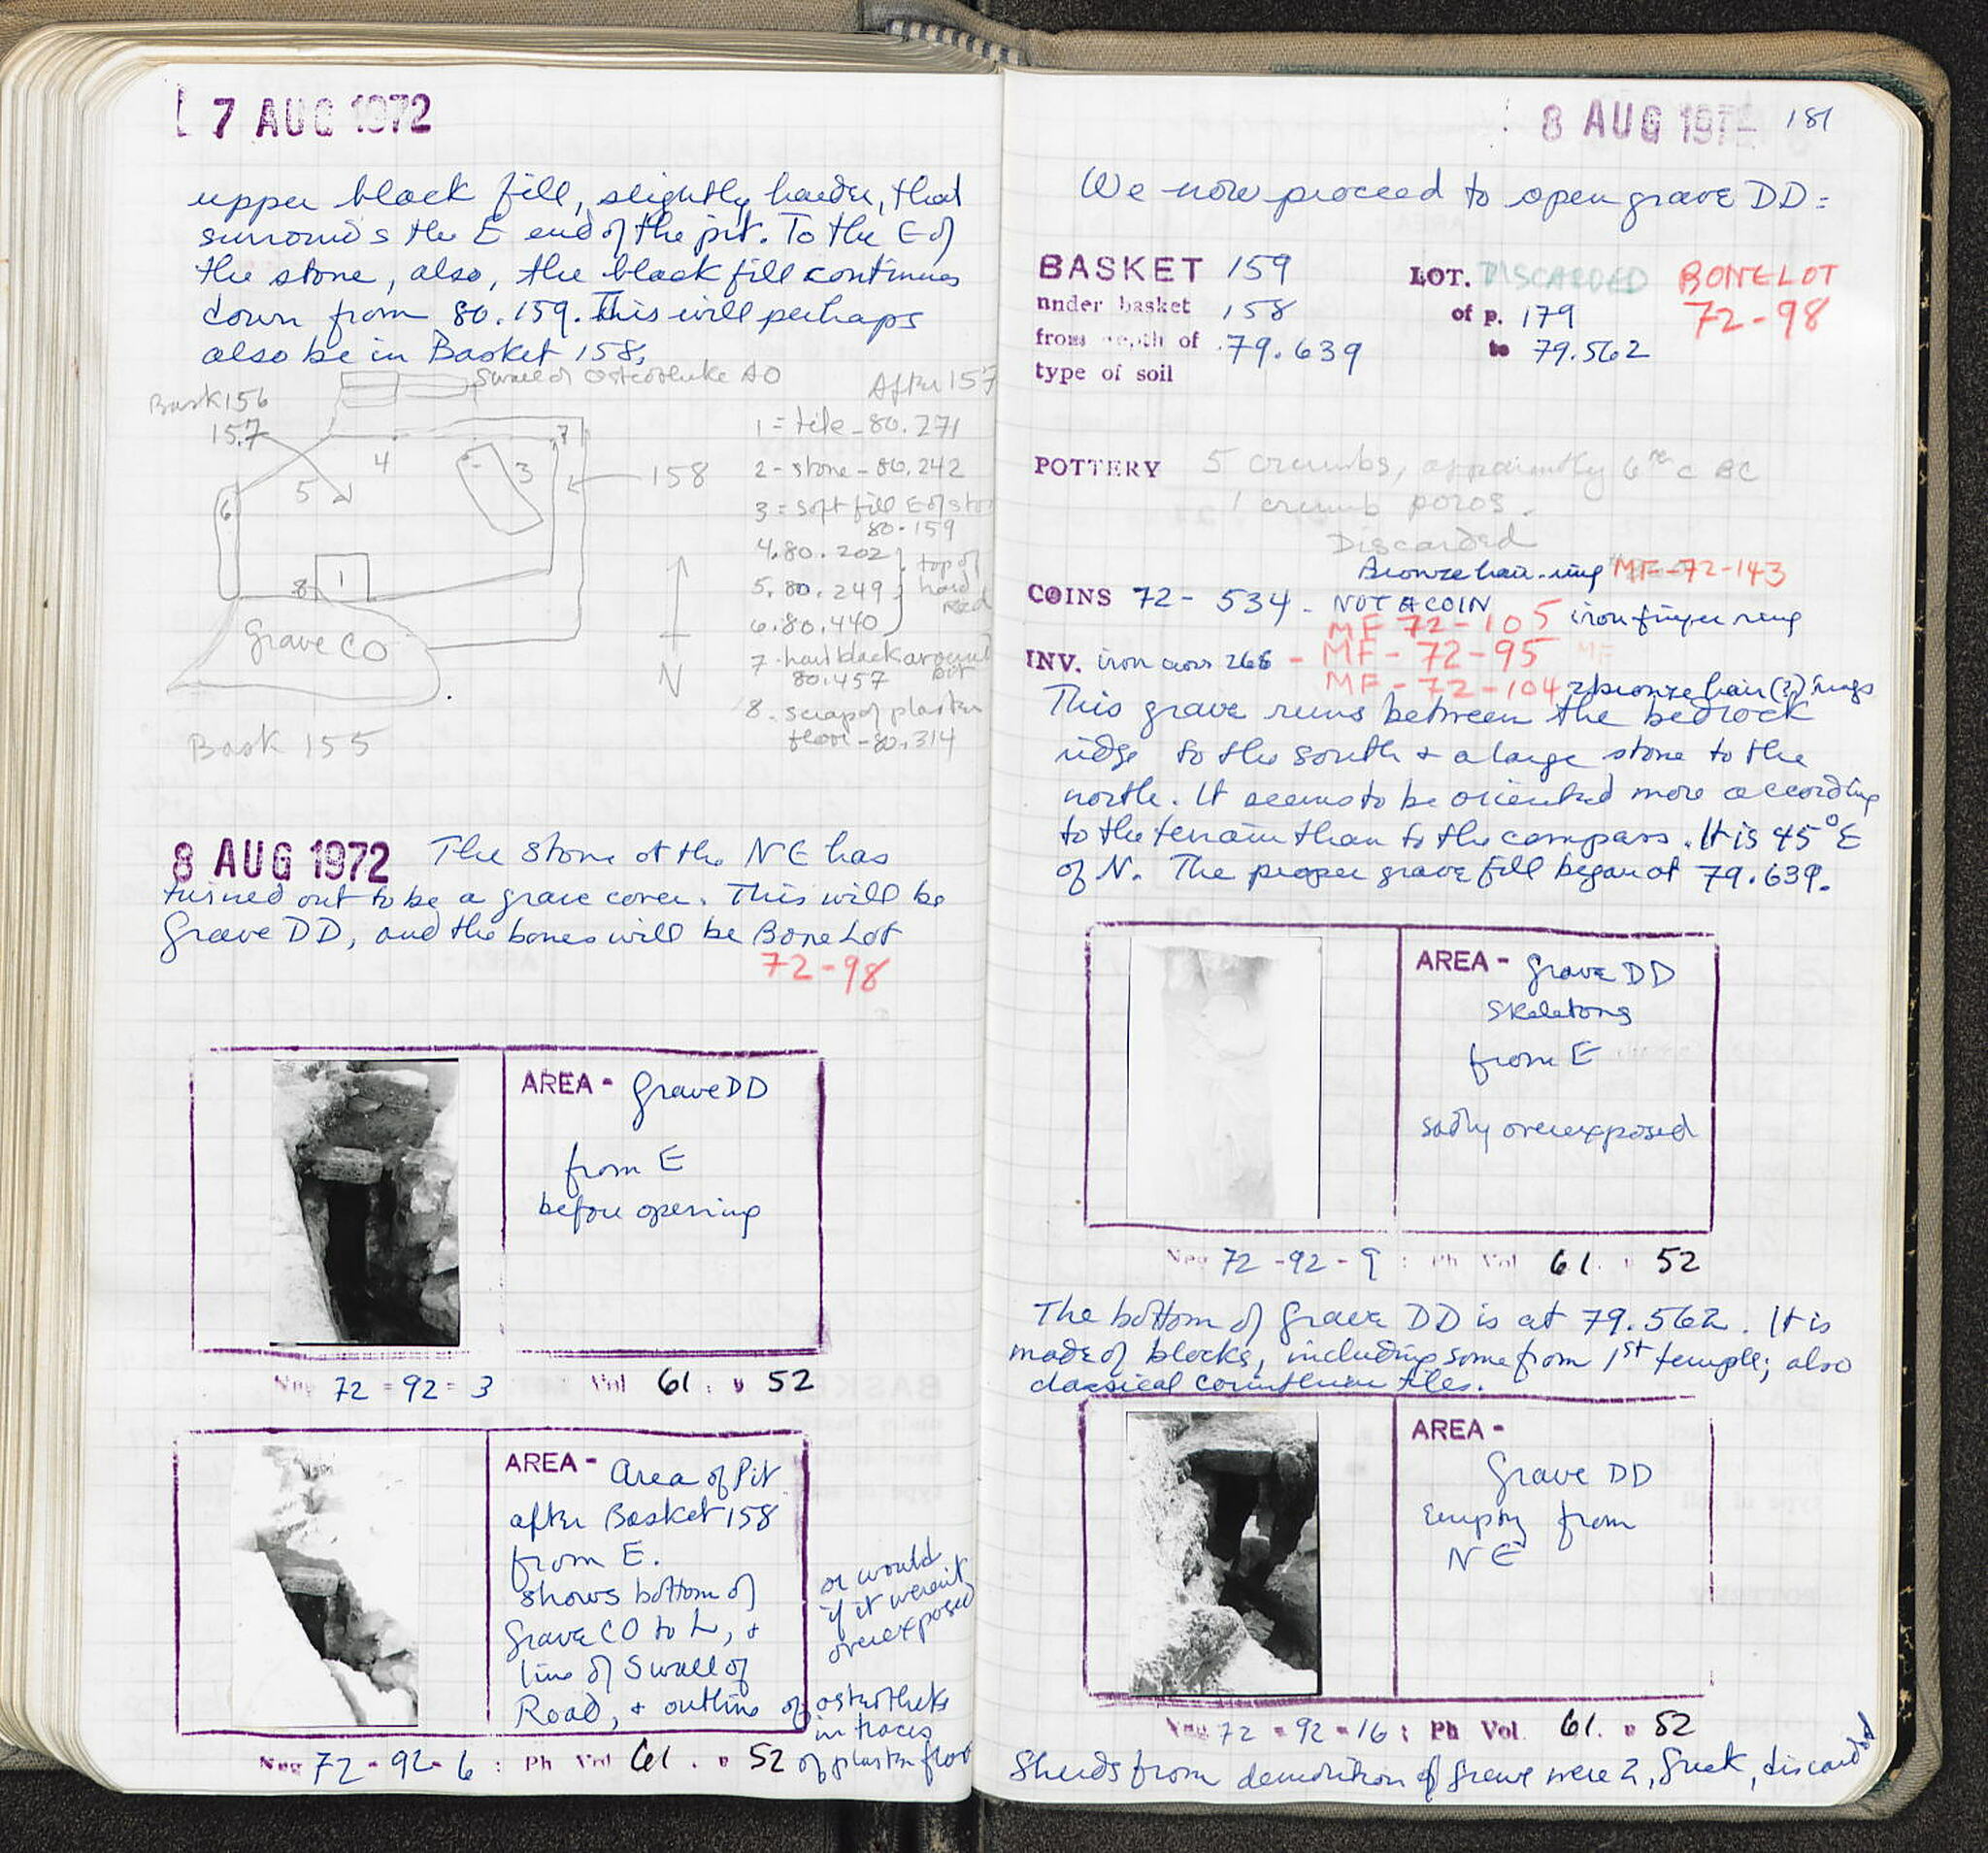 7 AUG 1972
upper black fill, slightly harder, that
surrounds the E end of the pit. To the E of
the stone, also, the black fill continues
down from 80.159. This will perhaps
also be in Basket 158.
S wall of Osteotheke AO
After 157
Bask 156
157
4
7
3
5
6
158
8
1
Grave CO
N
Bask 155
1 = tile - 80.271
2 - stone - 80.242
3 = soft fill E of sto
80.159
4. 80.202
5. 80.249
6. 80.440
top of
hard
red
7. hard black around
80.457 pit
8. scrap of plaster
floor - 80.314
8 AUG 1972 The stone at the NE has
turned out to be a grave cover. This will be
Grave DD, and the bones will be Bone Lot
72-98
AREA - Grave DD
from E
before opening
Neg 72-92-3 Vol 61. p 52
AREA - Area of Pit
after Basket 158
from E.
shows bottom of
Grave CO to L, +
line of S wall of
Road, + outline of osteotheke
in traces
of plaster floor
or would
if it weren't
overexposed
Neg 72-92-6 : Ph Vol 61. p 52
8 AUG 197 181
We now proceed to open grave DD:
BASKET 159 LOT. DISCARDED BONE LOT
under basket 158 of p. 179 72-98
from depth of 79.639 to 79.562
type of soil
POTTERY 5 crumbs, apparently 6th c BC
1 crumb poros.
Discarded
Bronze hair-ring MF-72-143
COINS 72-534 - NOT A COIN
MF 72-105 iron finger ring
INV. iron cross 266 - MF-72-95
MF-72-104 2 bronze hair (?) rings
This grave runs between the bedrock
ridge to the south + a large stone to the
north. It seems to be oriented more according
to the terrain than to the compass. It is 45° E
of N. The proper grave fill began at 79.639.
AREA - Grave DD
skeletons
from E
sadly overexposed
Neg 72-92-9 : Ph Vol 61. p 52
The bottom of Grave DD is at 79.562. It is
made of blocks, including some from 1st temple; also
classical Corinthian tiles.
AREA -
Grave DD
Empty from
NE
Neg 72-92-16 : Ph Vol. 61. p 52
Sherds from demolition of grave were 2, Greek, discarded